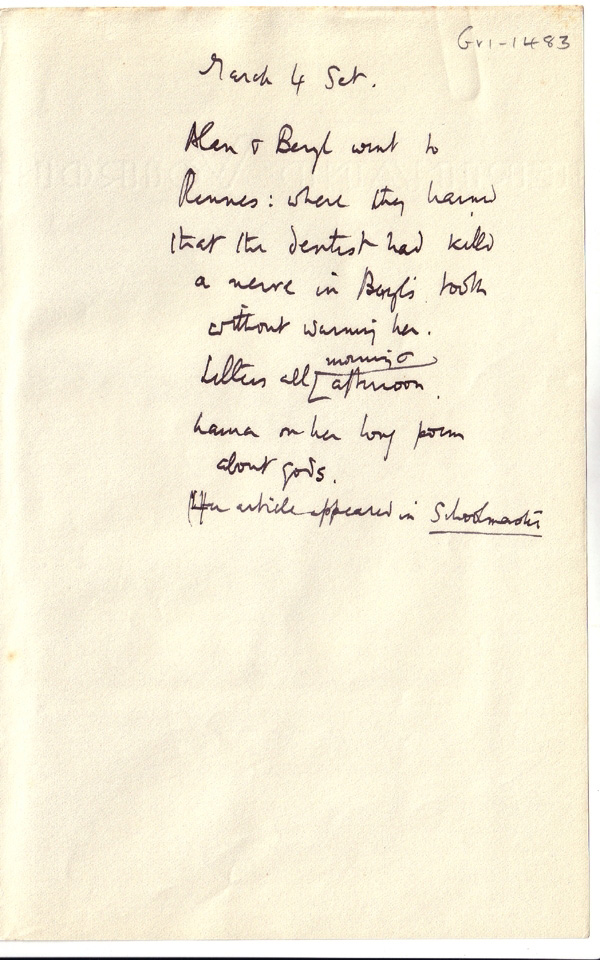 Gr1-1483
March 4 Sat.
Alan & Beryl went to
Rennes: where they learned
that the dentist had killed
a nerve in Beryl's tooth
without warning her.
morning &
Letters all [afternoon.
Laura on her long poem
about gods.
(Her article appeared in Schoolmaster